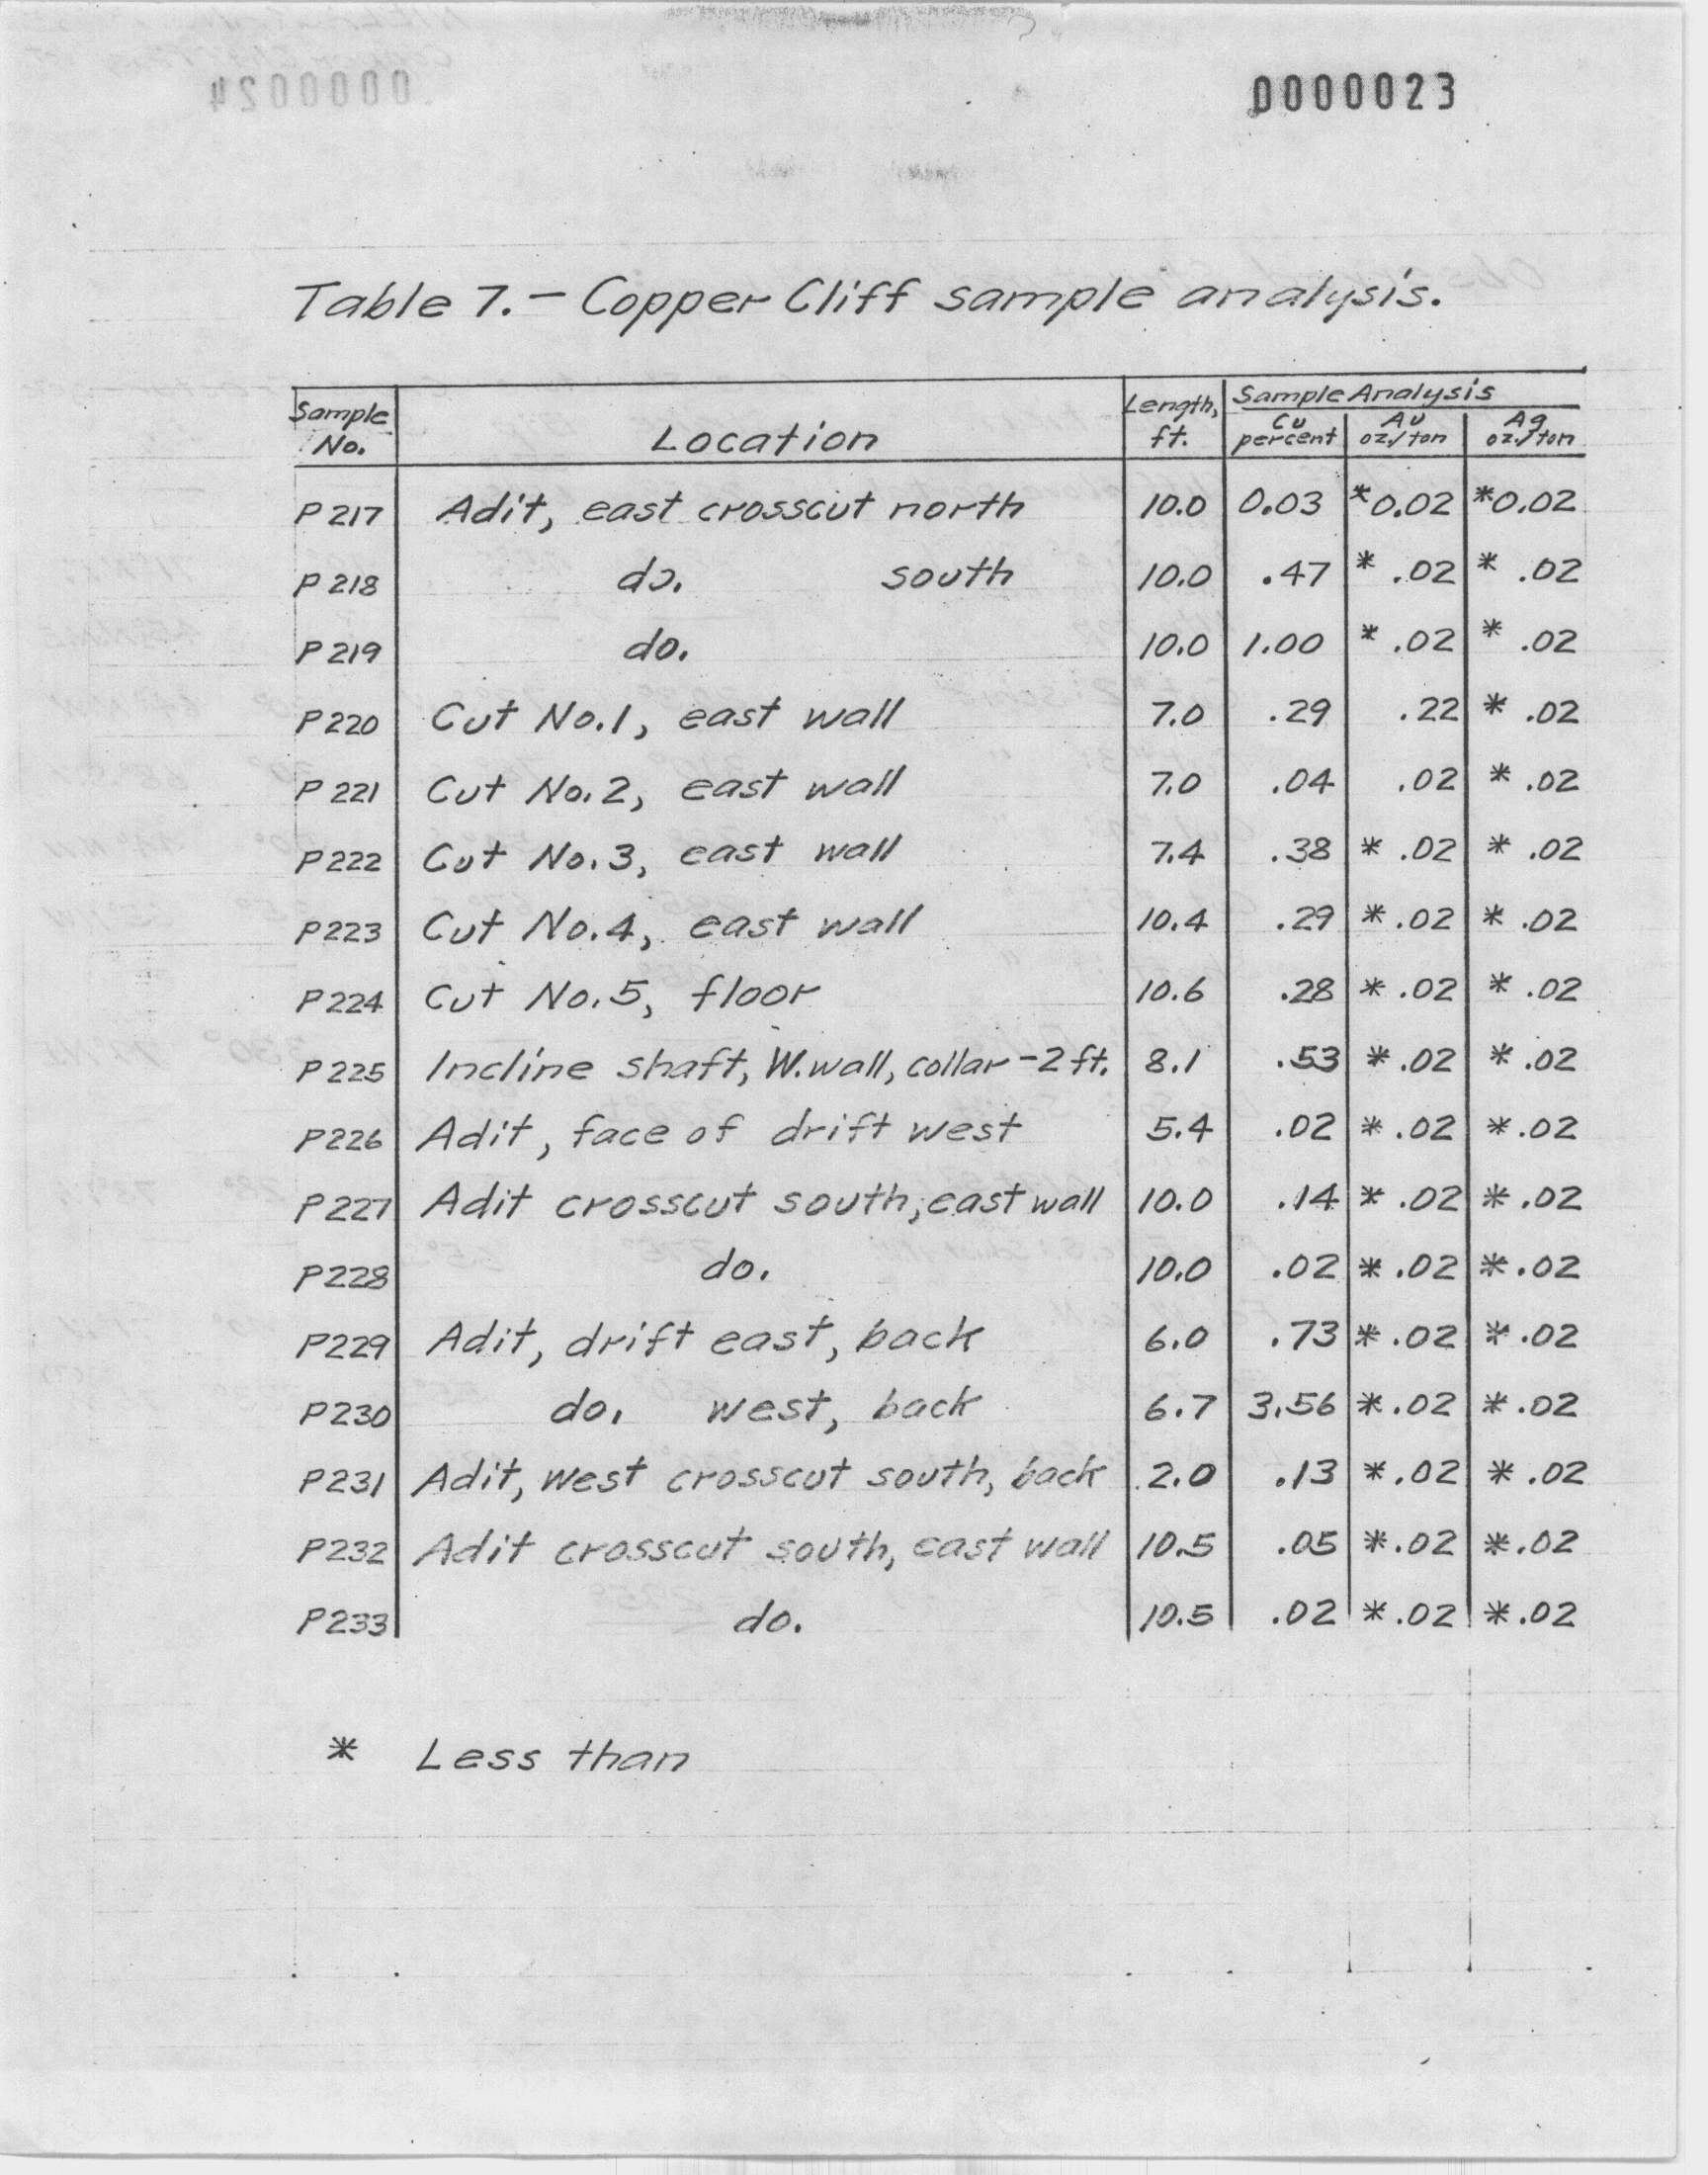 0000024
0000023
Table 7.- Copper Cliff sample analysis.
Sample No. Location Length, ft. Sample Analysis Cu percent Au oz./ton Ag oz./ton
P217 Adit, east crosscut north 10.0 0.03 *0.02 *0.02
P218 do. south 10.0 .47 * .02 * .02
P219 do. 10.0 1.00 * .02 * .02
P220 Cut No.1, east wall 7.0 .29 .22 * .02
P221 Cut No.2, east wall 7.0 .04 .02 * .02
P222 Cut No.3, east wall 7.4 .38 * .02 * .02
P223 Cut No.4, east wall 10.4 .29 * .02 * .02
P224 Cut No.5, floor 10.6 .28 * .02 * .02
P225 Incline shaft, W.wall, collar -2 ft. 8.1 .53 * .02 * .02
P226 Adit, face of drift west 5.4 .02 * .02 * .02
P227 Adit crosscut south, east wall 10.0 .14 * .02 * .02
P228 do. 10.0 .02 * .02 * .02
P229 Adit, drift east, back 6.0 .73 * .02 * .02
P230 do. west, back 6.7 3.56 * .02 * .02
P231 Adit, west crosscut south, back 2.0 .13 * .02 * .02
P232 Adit crosscut south, east wall 10.5 .05 * .02 * .02
P233 do. 10.5 .02 * .02 * .02
* Less than